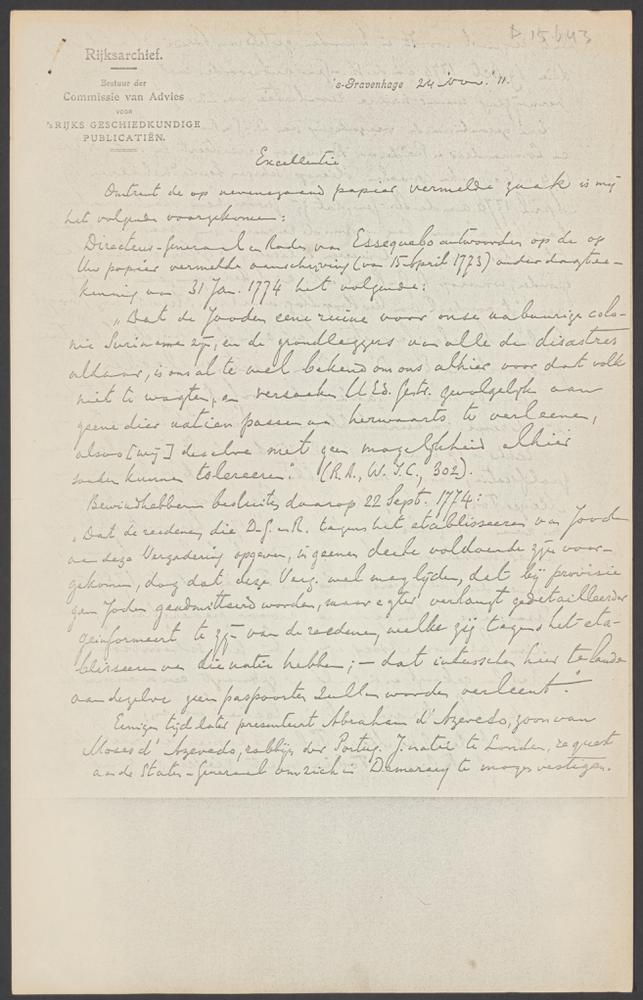 P 15 b 43
Rijksarchief.
Bestuur der
Commissie van Advies
VOOR
'S RIJKS GESCHIEDKUNDIGE
PUBLICATIËN.
's-Gravenhage 24 Nov. '11.
Excellentie
Omtrent de op nevensgaand papier vermelde zaak is mij
het volgende voorgekomen:
Directeur-Generaal en Raden van Essequebo antwoorden op de op
Uw papier vermelde aanschrijving (van 15 April 1773) onder dagtee-
kening van 31 Jan. 1774 het volgende:
„Dat de Jooden eene ruine voor onse nabuurige colo-
nie Suriname zijn, en de grondleggers van alle de disastres
aldaar, is ons al te wel bekend om ons alhier voor dat volk
niet te wagten, en versoeken U Ed. Gestr. gevolgelijk aan
geene dier natien passen na herwaarts te verleenen,
alsoo [wij] deselve met geen mogelijkheid alhier
souden kunnen tolereeren". (R.A., W.I.C., 302).
Bewindhebberen besluiten daarop 22 Sept. 1774:
„Dat de reedenen, die D.-G. en R. tegens het etablisseeren van Jooden
aan deze Vergadering opgeven, in geenen deele voldoende zijn voor-
gekomen, dog dat deze Verg. wel mag lijden, dat bij provisie
geen Joden geadmitteerd worden, maar egter verlangt gedetailleerder
geinformeert te zijn van de reedenen, welke zij tegens het eta-
blisseeren van die natie hebben; – dat intusschen hier te lande
aan dezelve geen paspoorten zullen worden verleent."
Eenigen tijd later presenteert Abraham d'Azevedo, zoon van
Moses d'Azevedo, rabbijn der Portug. J. natie te Londen, request
aan de Staten-Generaal om zich in Demerary te mogen vestigen.